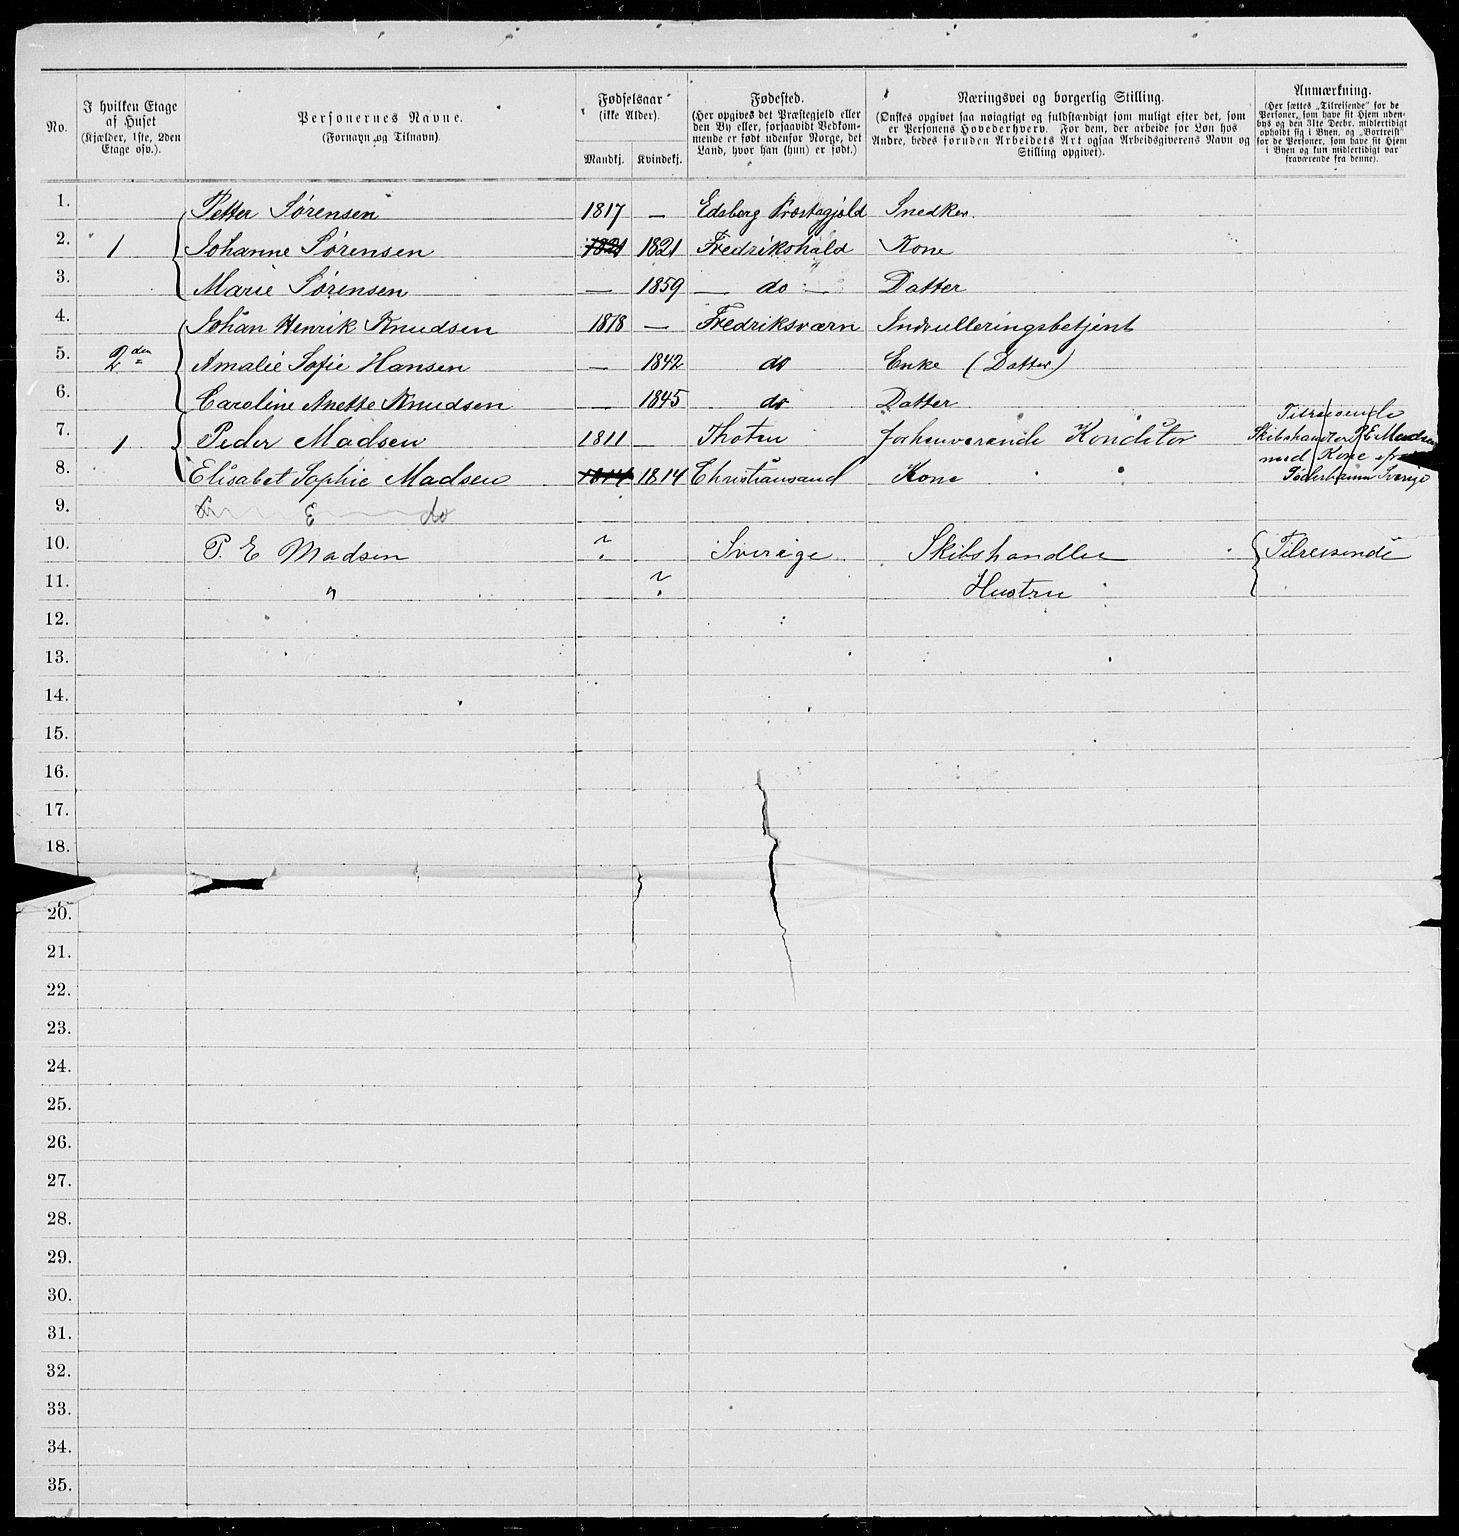 No.
I hvilken Etage
af Huset
(Kjælder, 1ste, 2den
Etage osv.).
Personernes Navne.
(Fornavn og Tilnavn).
Fødselsaar
(ikke Alder).
Mandkj.
Kvindekj.
Fødested.
(Her opgives det Præstegjeld eller
den By eller, forsaavidt Vedkom-
mende er født udenfor Norge, det
Land, hvor han (hun) er født.)
Næringsvei og borgerlig Stilling.
(Ønskes opgivet saa nøiagtigt og fuldstændigt som muligt efter det, som
er Personens Hovederhverv. For dem, der arbeide for Løn hos
Andre, bedes foruden Arbeidets Art ogsaa Arbeidsgiverens Navn og
Stilling opgivet).
Anmærkning.
(Her sættes „Tilreisende" for de
Personer, som have sit Hjem uden-
bys og den 31te Decbr. midlertidigt
opholdt sig i Byen, og „Bortreist"
for de Personer, som have sit Hjem
i Byen og kun midlertidigt var
fraværende fra denne).
1. Petter Sørensen 1817 — Edsberg Præstegjeld Snedker.
2. 1 Johanne Sørensen 1821 1821 Fredrikshald Kone
3. Marie Sørensen — 1859 — do — Datter
4. Johan Henrik Knudsen 1818 — Fredriksværn Indrulleringsbetjent
5. 2den Amalie Sofie Hansen — 1842 do Enke (Datter)
6. Caroline Anette Knudsen — 1845 do Datter
7. 1 Peder Madsen 1811 — Thoten forhenværende Konditor
8. Elisabet Sophie Madsen 1814 1814 Christiansand Kone
Tilreisende
Skibshandler P E Madsen
med Kone
Söderhamn Sverige
9. E do
10. P. E Madsen ? Sverige Skibshandler Tilreisende
11. " ? Hustru
12.
13.
14.
15.
16.
17.
18.
20.
21.
22.
23.
24.
25.
26.
27.
28.
29.
30.
31.
32.
33.
34.
35.